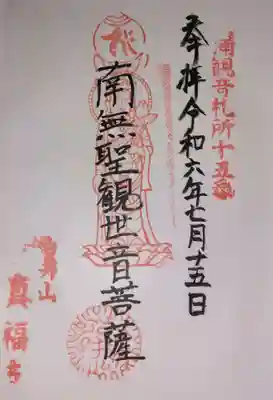 南観音札所十五番
奉拝令和六年七月十五日
南無聖観世音菩薩
真福寺